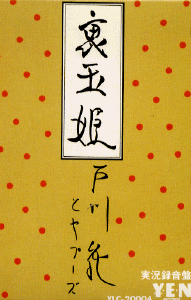 裏玉姫
戸川純
とヤプーズ
実況録音盤
YEN
YLC-20004